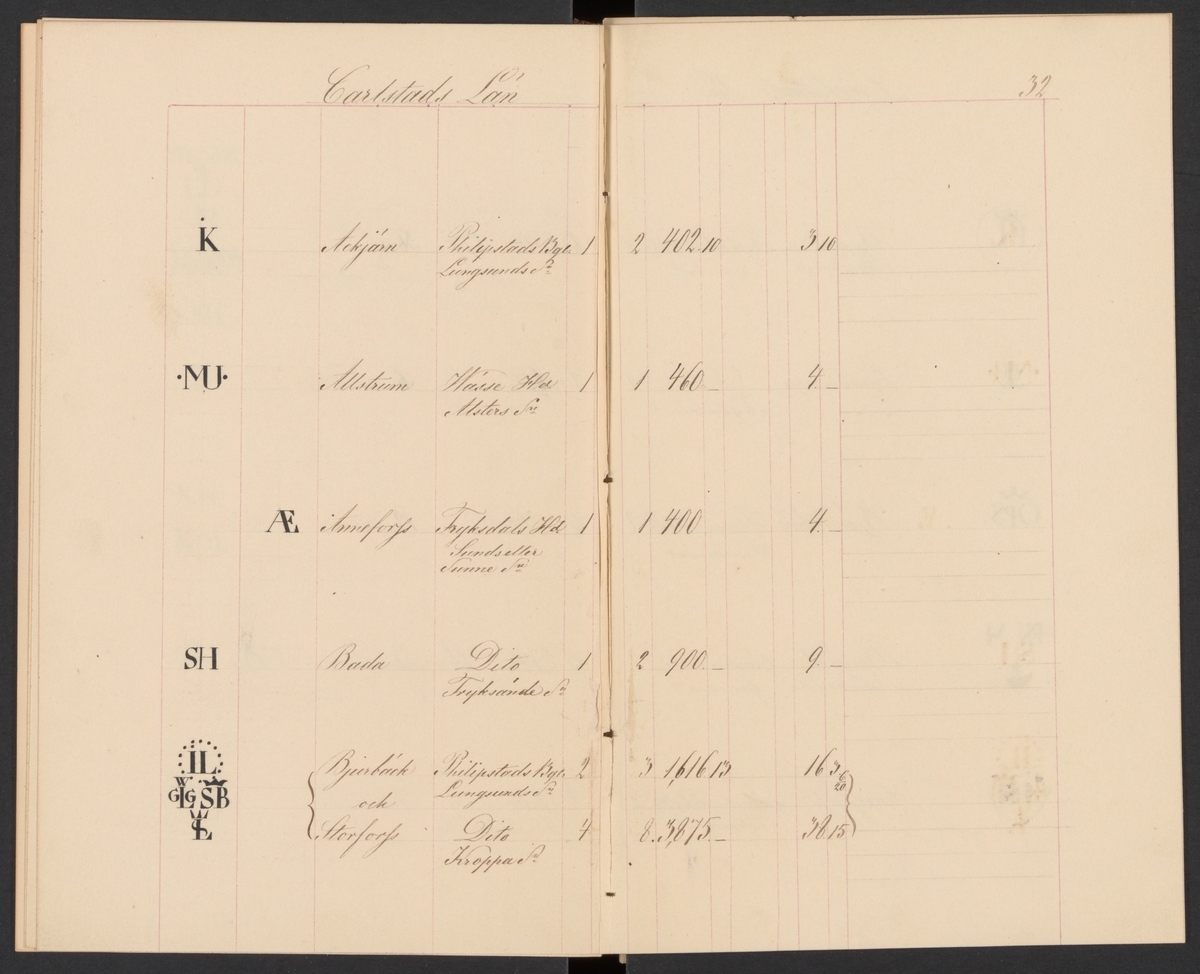 Carlstads Län 32
K Ackjärn Philipstads Bgl. 1 2 402.10 3 10
Lungsunds Sn
·MU· Allstrum Wässe Hd 1 1 460.— 4.—
Alsters Sn
Æ Anneforss Fryksdals Hd 1 1 400 4.—
Sunds eller
Sunne Sn
SH Bada Dito 1 2 900.— 9.—
Fryksände Sn
IL Bjurbäck Philipstads Bgl. 2 3 1,616.13 16 3
W GLG SB och Lungsunds Sn
L Storforss Dito 4 8. 3,875.— 38.15
Kroppa Sn